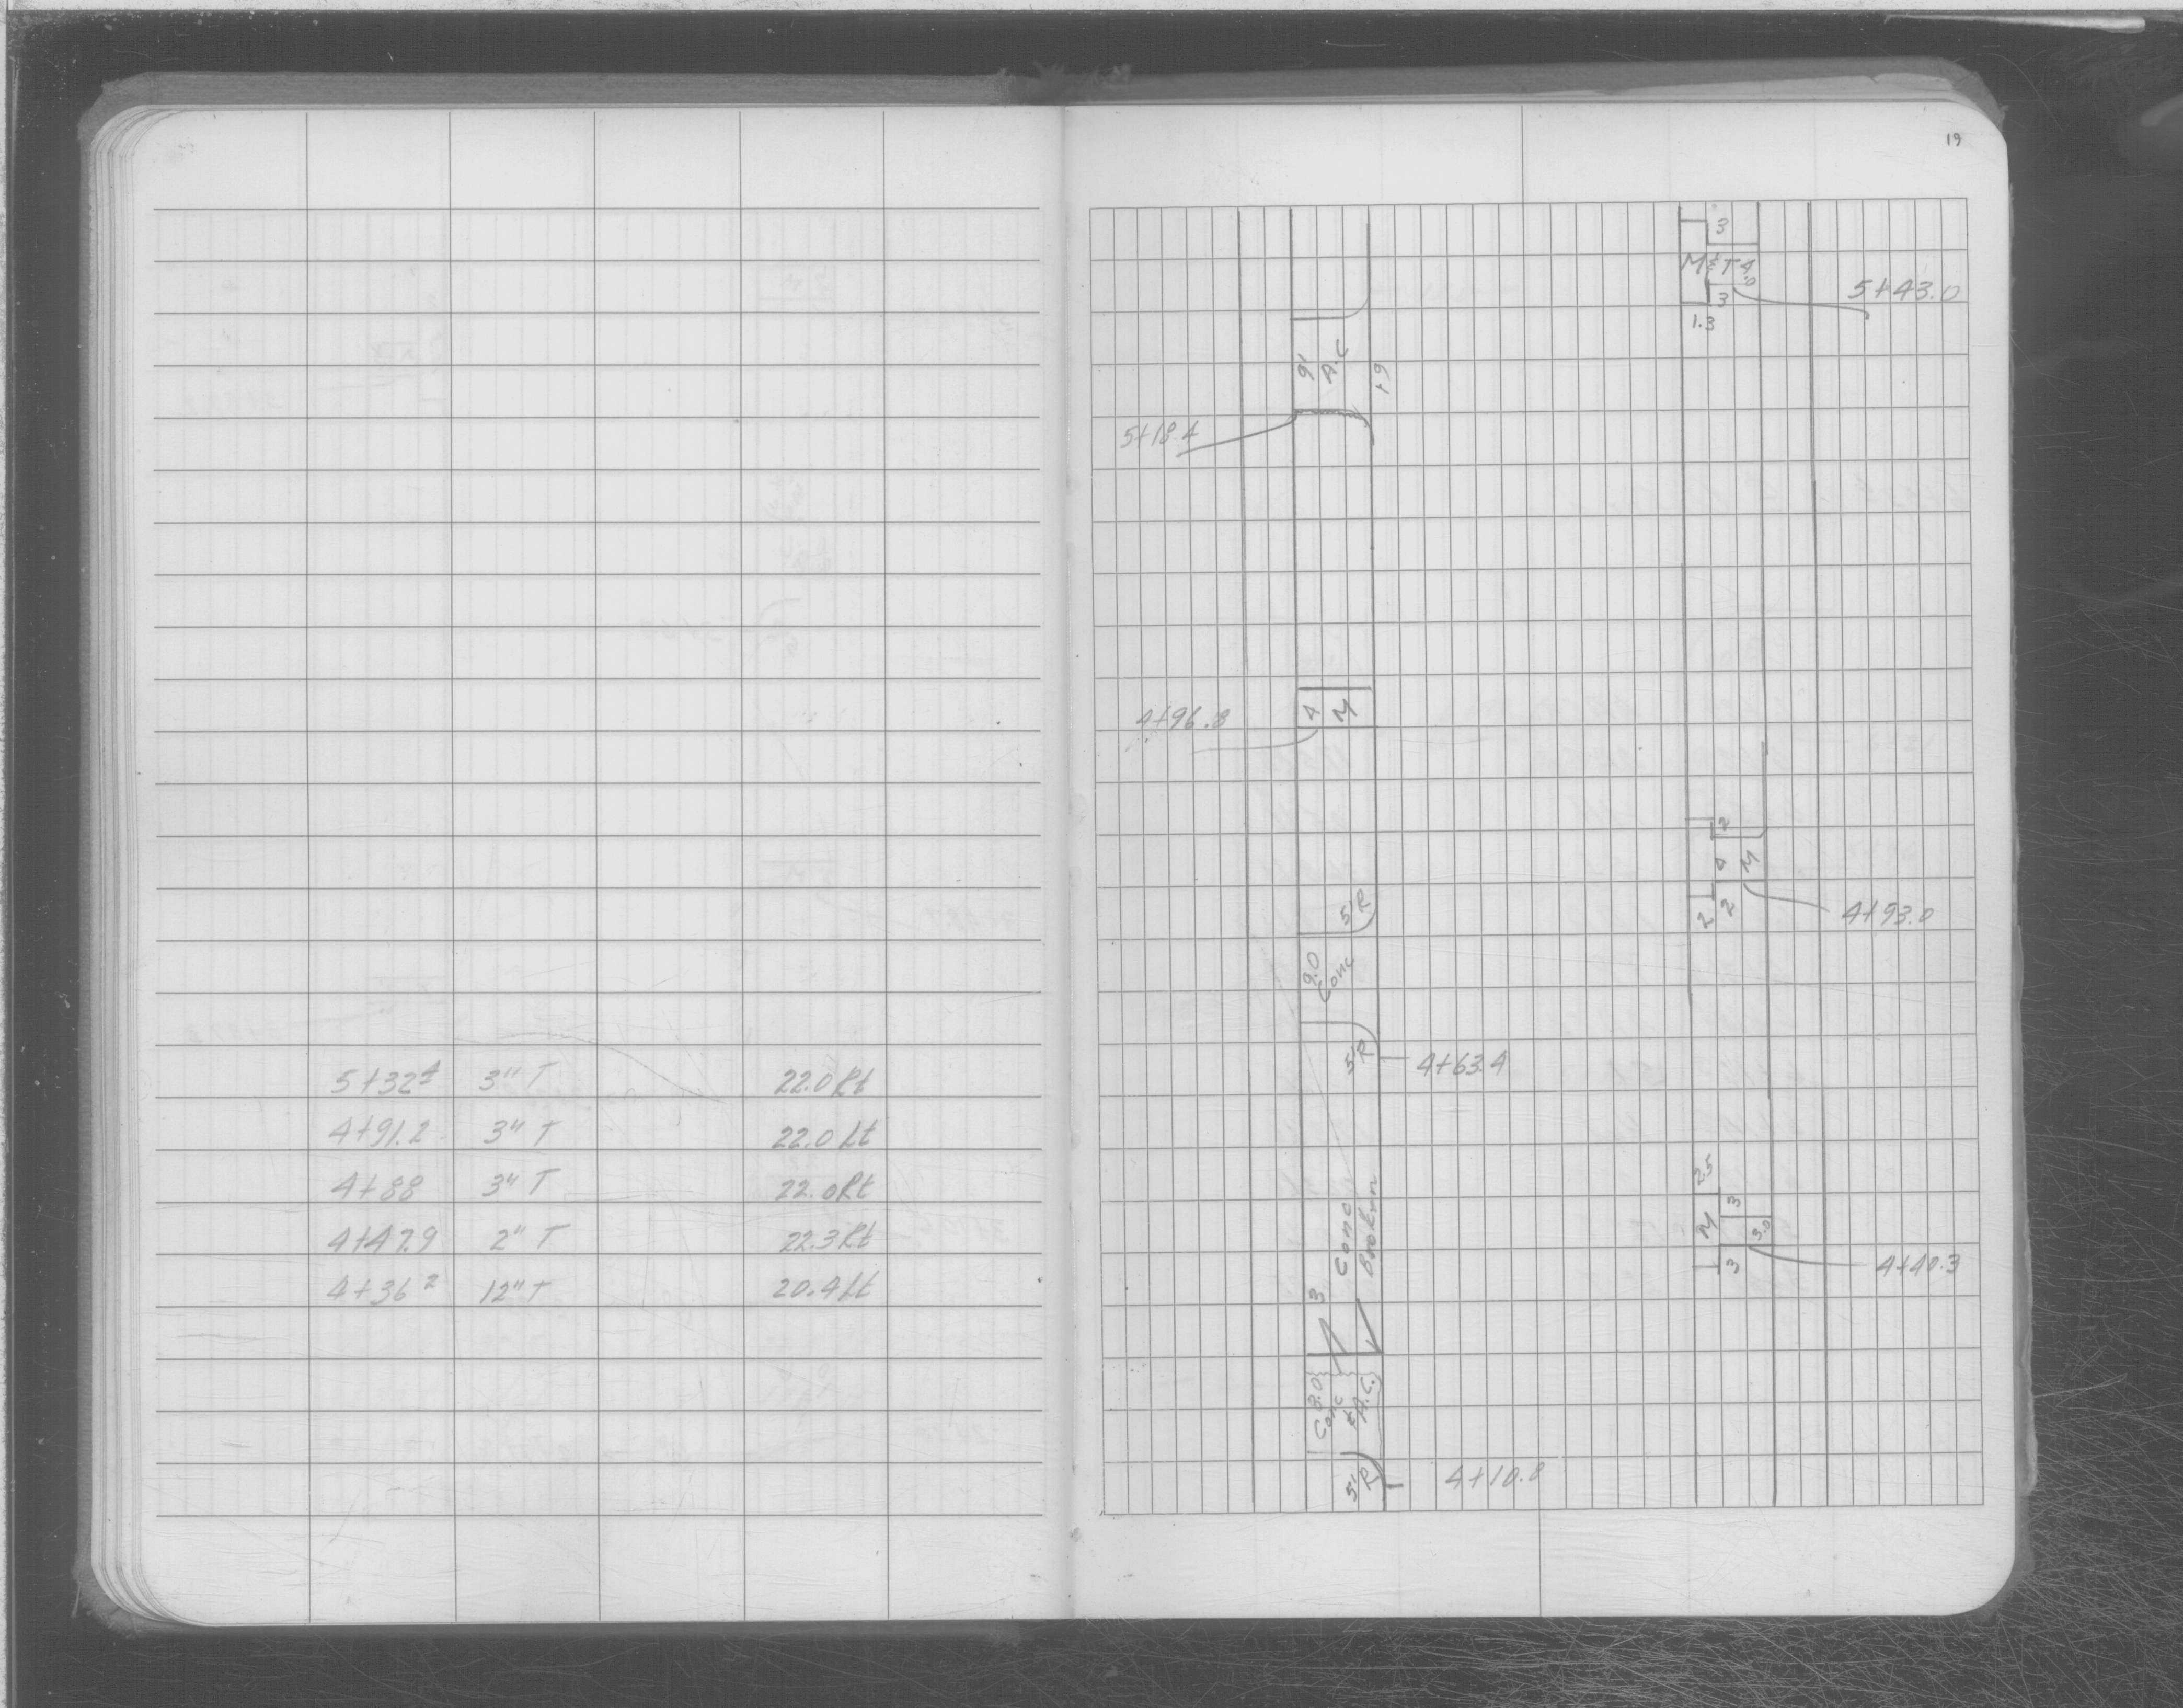 19
5+32⁴ 3" T 22.0 Rt
4+91.2 3" T 22.0 Lt
4+88 3" T 22.0 Rt
4+47.9 2" T 22.3 Rt
4+36² 12" T 20.4 Lt
3
M & T 4
3
5+43.0
1.3
9'
A.C
19
5+18.4
4
M
4+96.8
2
4
M
2
2
4+93.0
5'R
9.0
Conc
5'R
4+63.4
2.5
M
3
3.0
3
4+40.3
3
Conc
Broken
8.0
Conc
& A.C.
5'
R
4+10.8